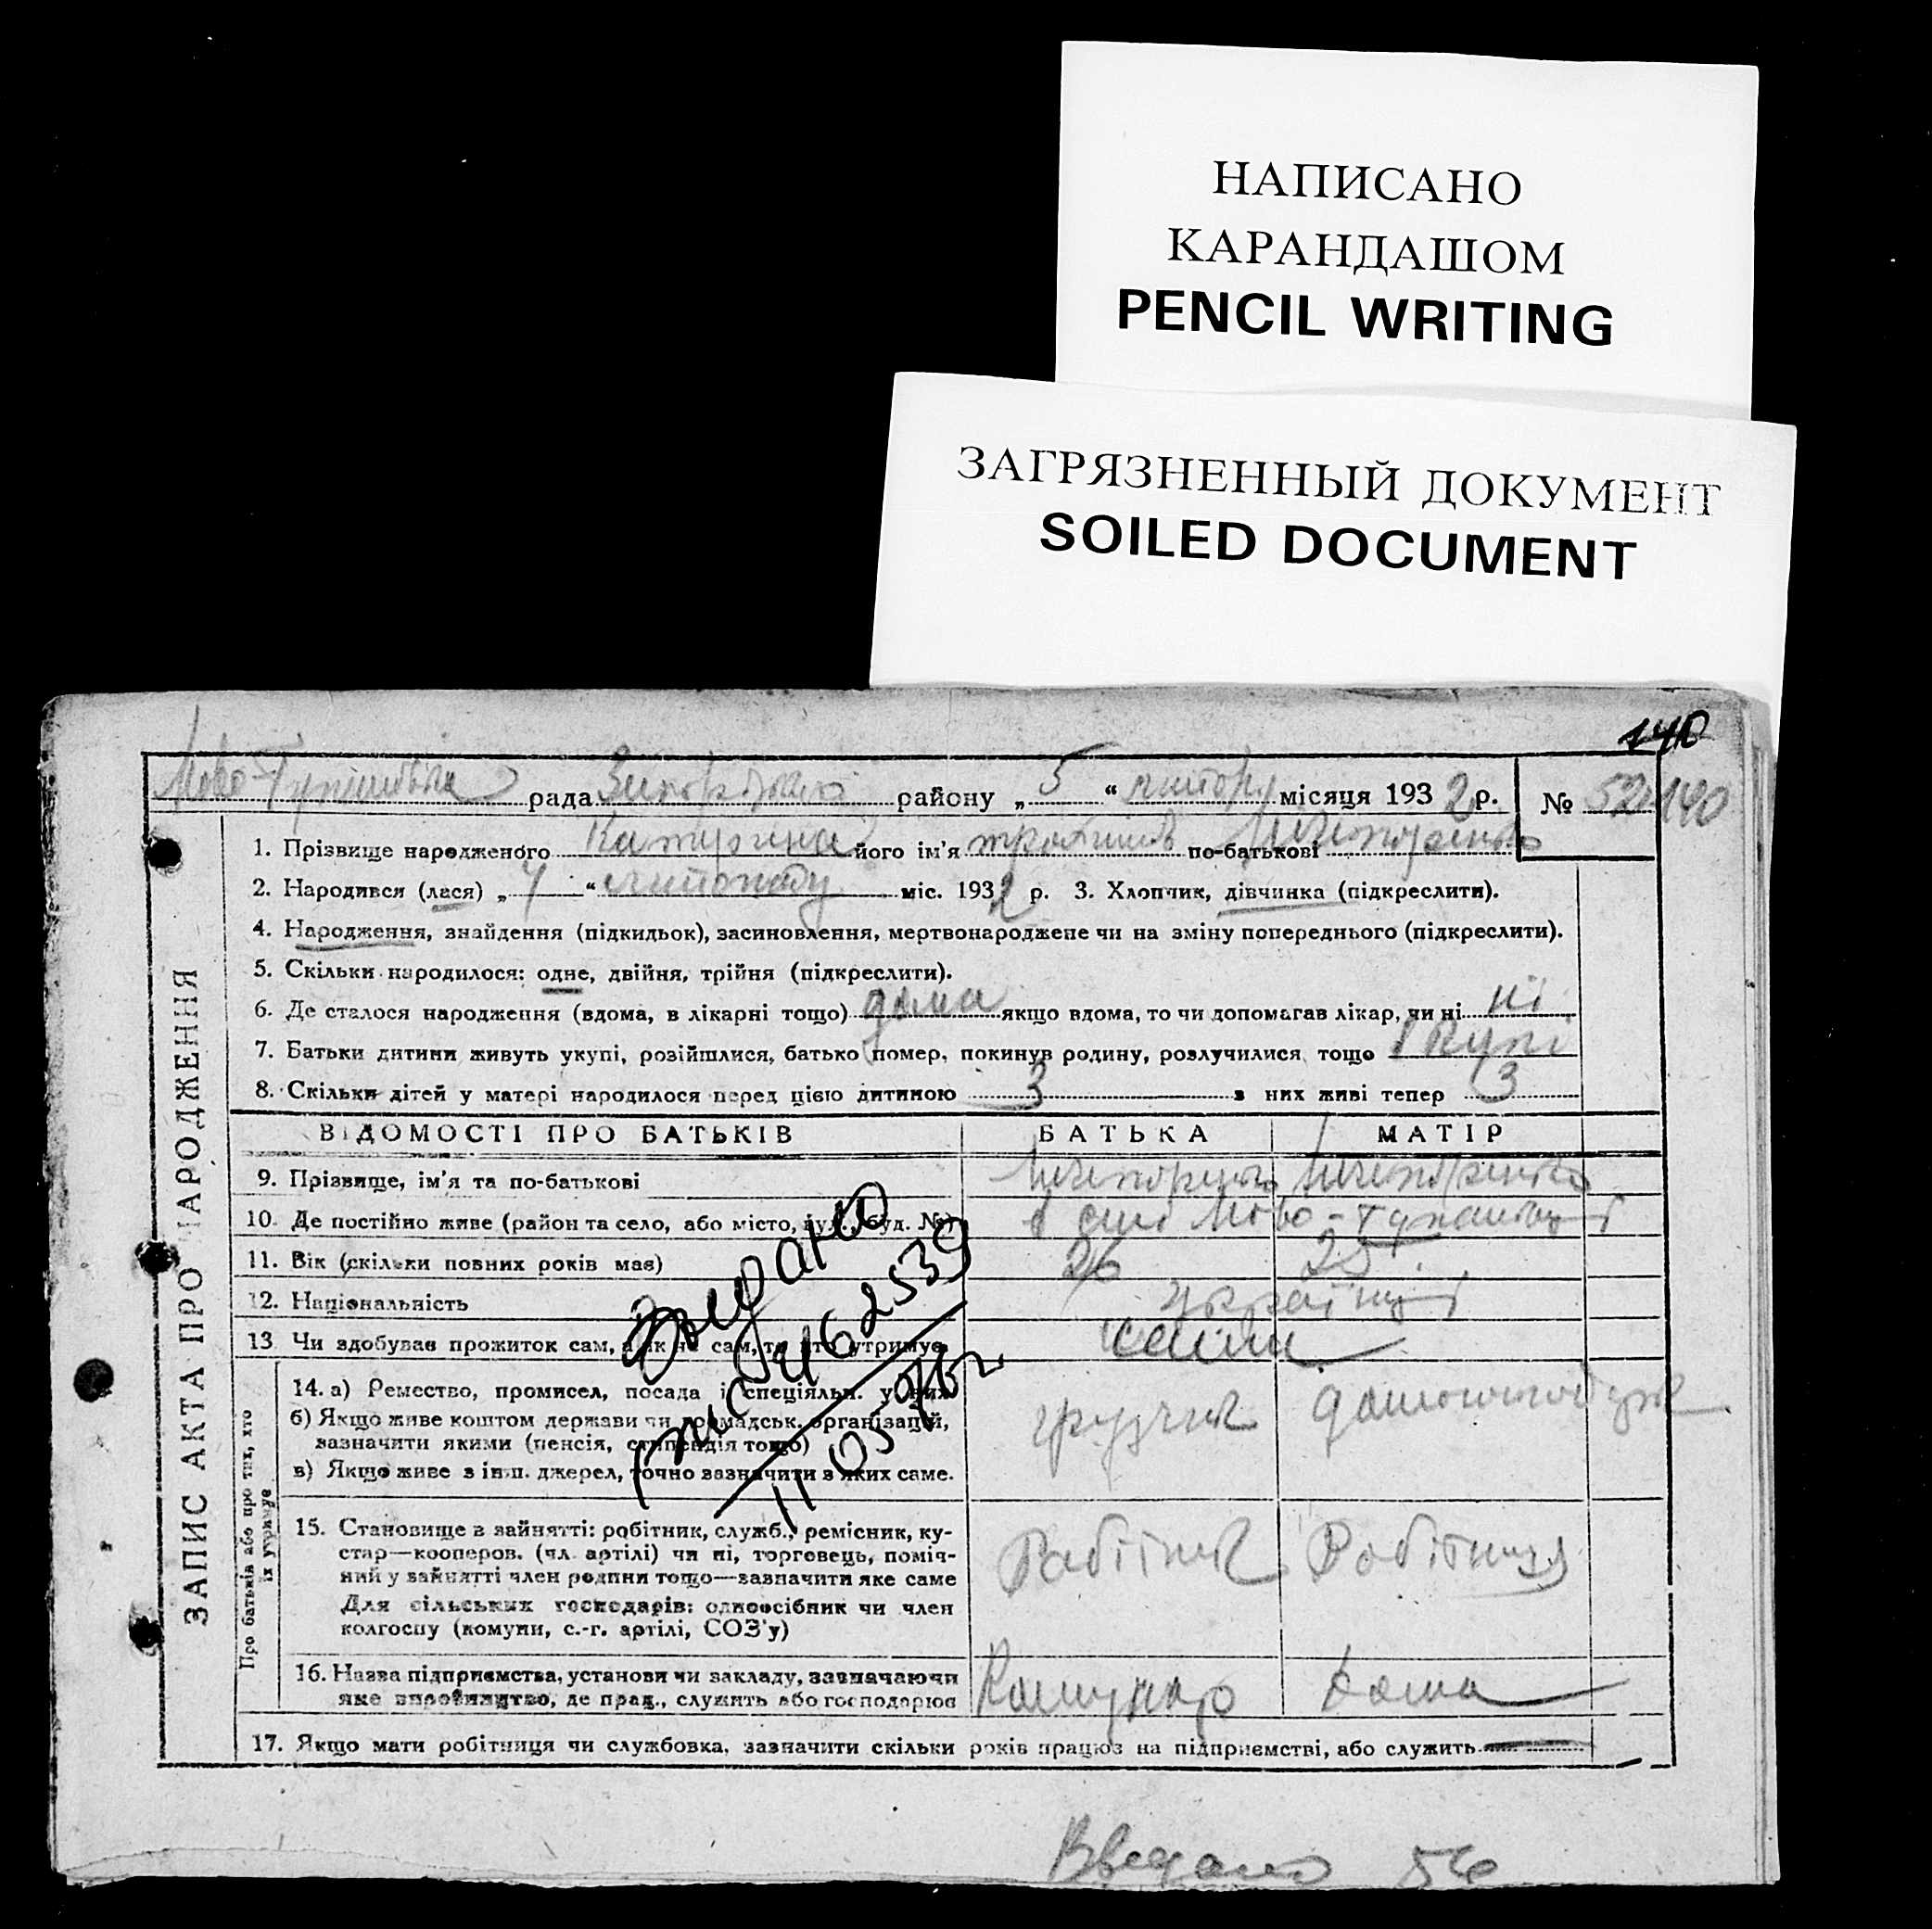 НАПИСАНО
КАРАНДАШОМ
PENCIL WRITING
ЗАГРЯЗНЕННЫЙ ДОКУМЕНТ
SOILED DOCUMENT
140
рада району „ 5 “ місяця 1932 р. № 52 140
ЗАПИС АКТА ПРО НАРОДЖЕННЯ
1. Прізвище народженого Катерина його ім'я по-батькові
2. Народився (лася) „ 4 “ листопаду міс. 1932 р. 3. Хлопчик, дівчинка (підкреслити).
4. Народження, знайдення (підкидьок), засиновлення, мертвонароджене чи на зміну попереднього (підкреслити).
5. Скільки народилося: одне, двійня, трійня (підкреслити).
6. Де сталося народження (вдома, в лікарні тощо) дома якщо вдома, то чи допомагав лікар, чи ні ні
7. Батьки дитини живуть укупі, розійшлися, батько помер, покинув родину, розлучилися тощо вкупі
8. Скільки дітей у матері народилося перед цією дитиною 3 з них живі тепер 3
ВІДОМОСТІ ПРО БАТЬКІВ БАТЬКА МАТІР
9. Прізвище, ім'я та по-батькові
10. Де постійно живе (район та село, або місто, вул., буд. №) в селі Ново-
11. Вік (скільки повних років має) 26 25
12. Національність українці
13. Чи здобував прожиток сам, а як не сам, то хто утримує сами
Видано
462539
11 05
Про батьків або про тих, хто їх утримує
14. а) Ремество, промисел, посада і спеціяльн. у них грузчик домогосподарка
б) Якщо живе коштом держави чи громадськ. організацій,
зазначити якими (пенсія, стипендія тощо)
в) Якщо живе з інш. джерел, точно зазначити з яких саме.
15. Становище в зайнятті: робітник, служб., ремісник, ку-
стар—кооперов. (чл. артілі) чи ні, торговець, поміч-
ний у зайнятті член родини тощо—зазначити яке саме Робітник Робітниця
Для сільських господарів: одноосібник чи член
колгоспу (комуни, с.-г. артілі, СОЗ'у)
16. Назва підприємства, установи чи закладу, зазначаючи
яке виробництво, де прац., служить або господарює дома
17. Якщо мати робітниця чи службовка, зазначити скільки років працює на підприємстві, або служить
Введено 56